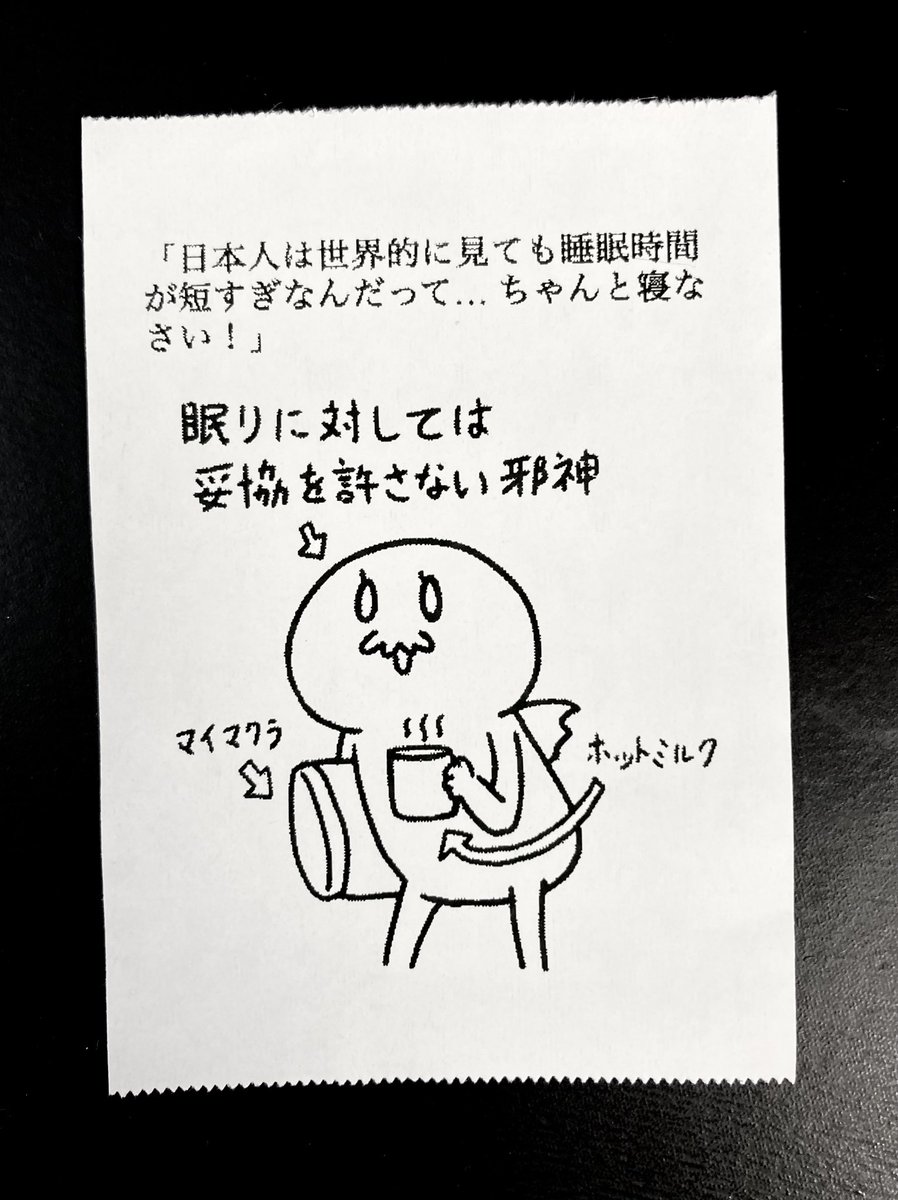 「日本人は世界的に見ても睡眠時間
が短すぎなんだって…ちゃんと寝な
さい！」
眠りに対しては
妥協を許さない邪神
マイマクラ
ホットミルク